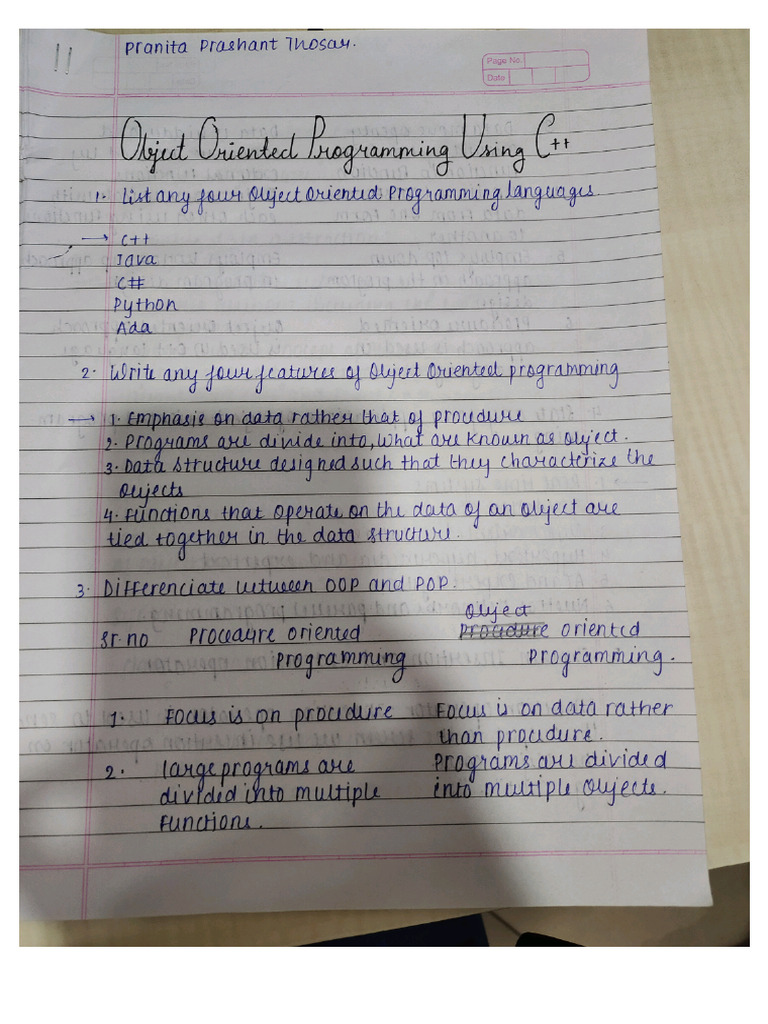 11
Pranita Prashant Thosar.
Page No.
Date
Object Oriented Programming Using C++
1. List any four Object Oriented Programming languages
→ C++
Java
C#
Python
Ada
2. Write any four features of Object Oriented programming
→ 1. Emphasis on data rather that of procedure
2. Programs are divide into, what are known as object.
3. Data structure designed such that they characterize the
objects
4. Functions that operate on the data of an object are
tied together in the data structure.
3. Differenciate between OOP and POP.
Object
Sr.no Procedure oriented Procedure oriented
Programming Programming.
1. Focus is on procedure Focus is on data rather
than procedure.
2. large programs are Programs are divided
divided into multiple into multiple objects.
functions.